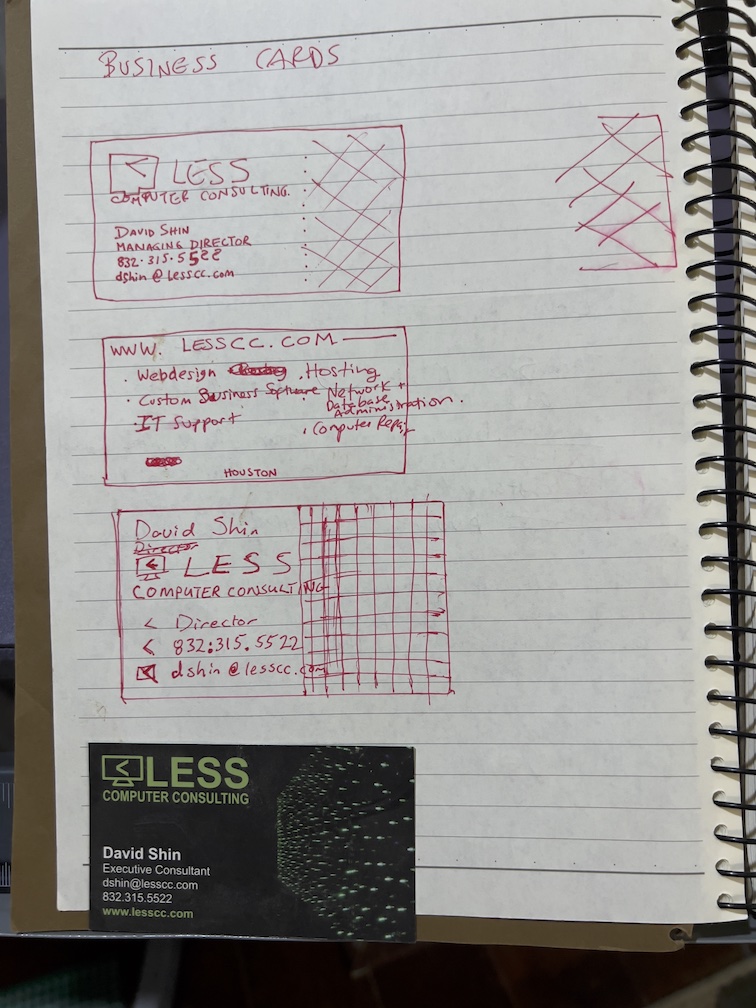 BUSINESS CARDS
< LESS
COMPUTER CONSULTING.
DAVID SHIN
MANAGING DIRECTOR
832.315.5522
dshin@lesscc.com
WWW. LESSCC.COM
. Webdesign
. Custom Business Software
. IT Support
. Hosting
. Network +
Database
Administration.
. Computer Repair
HOUSTON
David Shin
Director
< LESS
COMPUTER CONSULTING
< Director
< 832:315.5522
dshin@lesscc.com
< LESS
COMPUTER CONSULTING
David Shin
Executive Consultant
dshin@lesscc.com
832.315.5522
www.lesscc.com